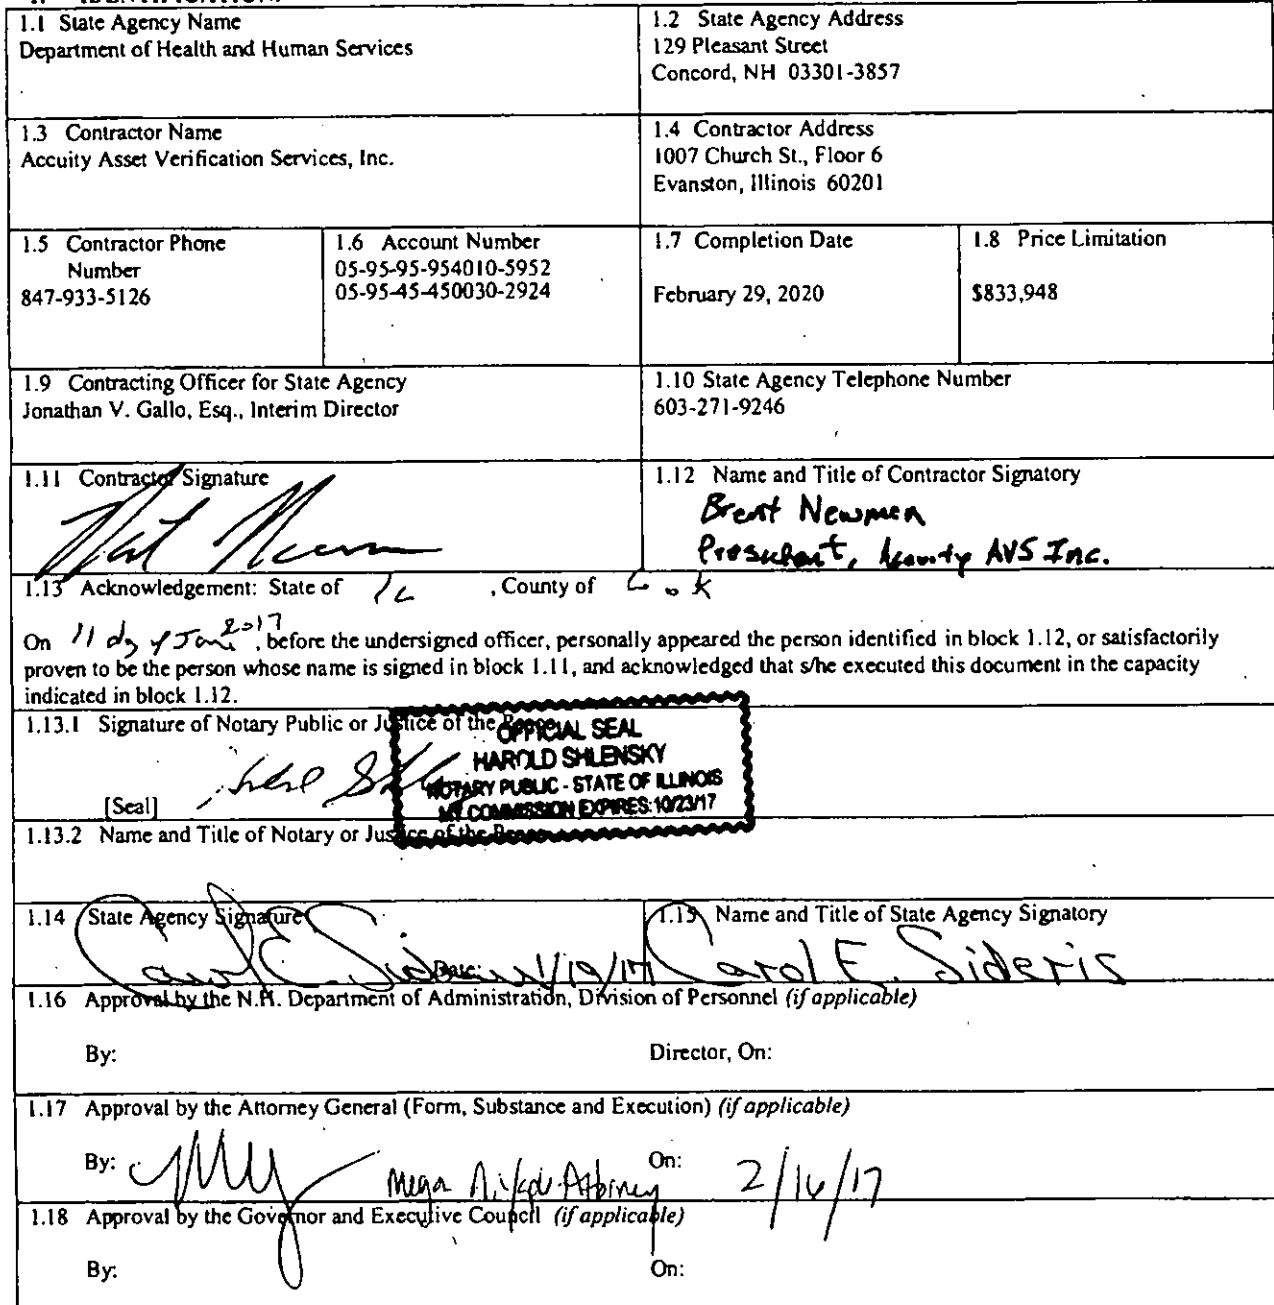 1.1 State Agency Name
Department of Health and Human Services
1.2 State Agency Address
129 Pleasant Street
Concord, NH 03301-3857
1.3 Contractor Name
Accuity Asset Verification Services, Inc.
1.4 Contractor Address
1007 Church St., Floor 6
Evanston, Illinois 60201
1.5 Contractor Phone
Number
847-933-5126
1.6 Account Number
05-95-95-954010-5952
05-95-45-450030-2924
1.7 Completion Date
February 29, 2020
1.8 Price Limitation
$833,948
1.9 Contracting Officer for State Agency
Jonathan V. Gallo, Esq., Interim Director
1.10 State Agency Telephone Number
603-271-9246
1.11 Contractor Signature
1.12 Name and Title of Contractor Signatory
Brent Newman
President, Accuity AVS Inc.
1.13 Acknowledgement: State of IL , County of Cook
On 11 day of Jan 2017, before the undersigned officer, personally appeared the person identified in block 1.12, or satisfactorily
proven to be the person whose name is signed in block 1.11, and acknowledged that s/he executed this document in the capacity
indicated in block 1.12.
1.13.1 Signature of Notary Public or Justice of the
OFFICIAL SEAL
HAROLD SHLENSKY
NOTARY PUBLIC - STATE OF ILLINOIS
MY COMMISSION EXPIRES:10/23/17
[Seal]
1.13.2 Name and Title of Notary or Justice of the
1.14 State Agency Signature
Carol E. Sideris Date: 1/19/17
1.15 Name and Title of State Agency Signatory
Carol E. Sideris
1.16 Approval by the N.H. Department of Administration, Division of Personnel (if applicable)
By: Director, On:
1.17 Approval by the Attorney General (Form, Substance and Execution) (if applicable)
By: Attorney On: 2/16/17
1.18 Approval by the Governor and Executive Council (if applicable)
By: On: